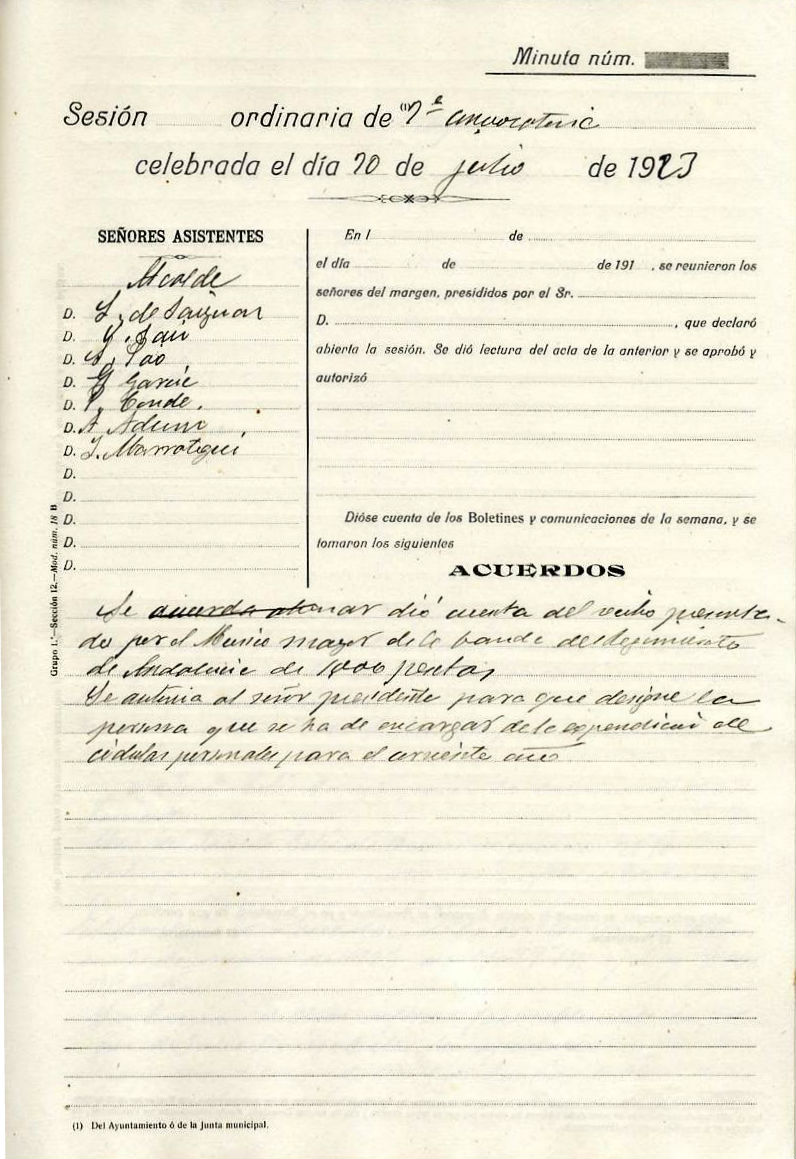 Minuta núm.
Sesión ordinaria de (1) 2ª convocatoria
celebrada el día 20 de julio de 1923
SEÑORES ASISTENTES
Alcalde
D. L. de
D.
D. A.
D. G. García
D. P. Conde.
D. A.
D. J. Marrotegui
D.
D.
D.
D.
D.
En l de
el día de de 191 , se reunieron los
señores del margen, presididos por el Sr.
D. , que declaró
abierta la sesión. Se dió lectura del acta de la anterior y se aprobó y
autorizó
Dióse cuenta de los Boletines y comunicaciones de la semana, y se
tomaron los siguientes
ACUERDOS
Se acuerda dió cuenta del recibo presenta-
do por el Musico mayor de la banda del Regimiento
de Andalucia de 1000 pesetas
Se autoriza al señor presidente para que designe la
persona que se ha de encargar de la expendición de
cédulas personales para el corriente año
Grupo 1.º—Sección 12.—Mod. núm. 18 B
(1) Del Ayuntamiento ó de la Junta municipal.